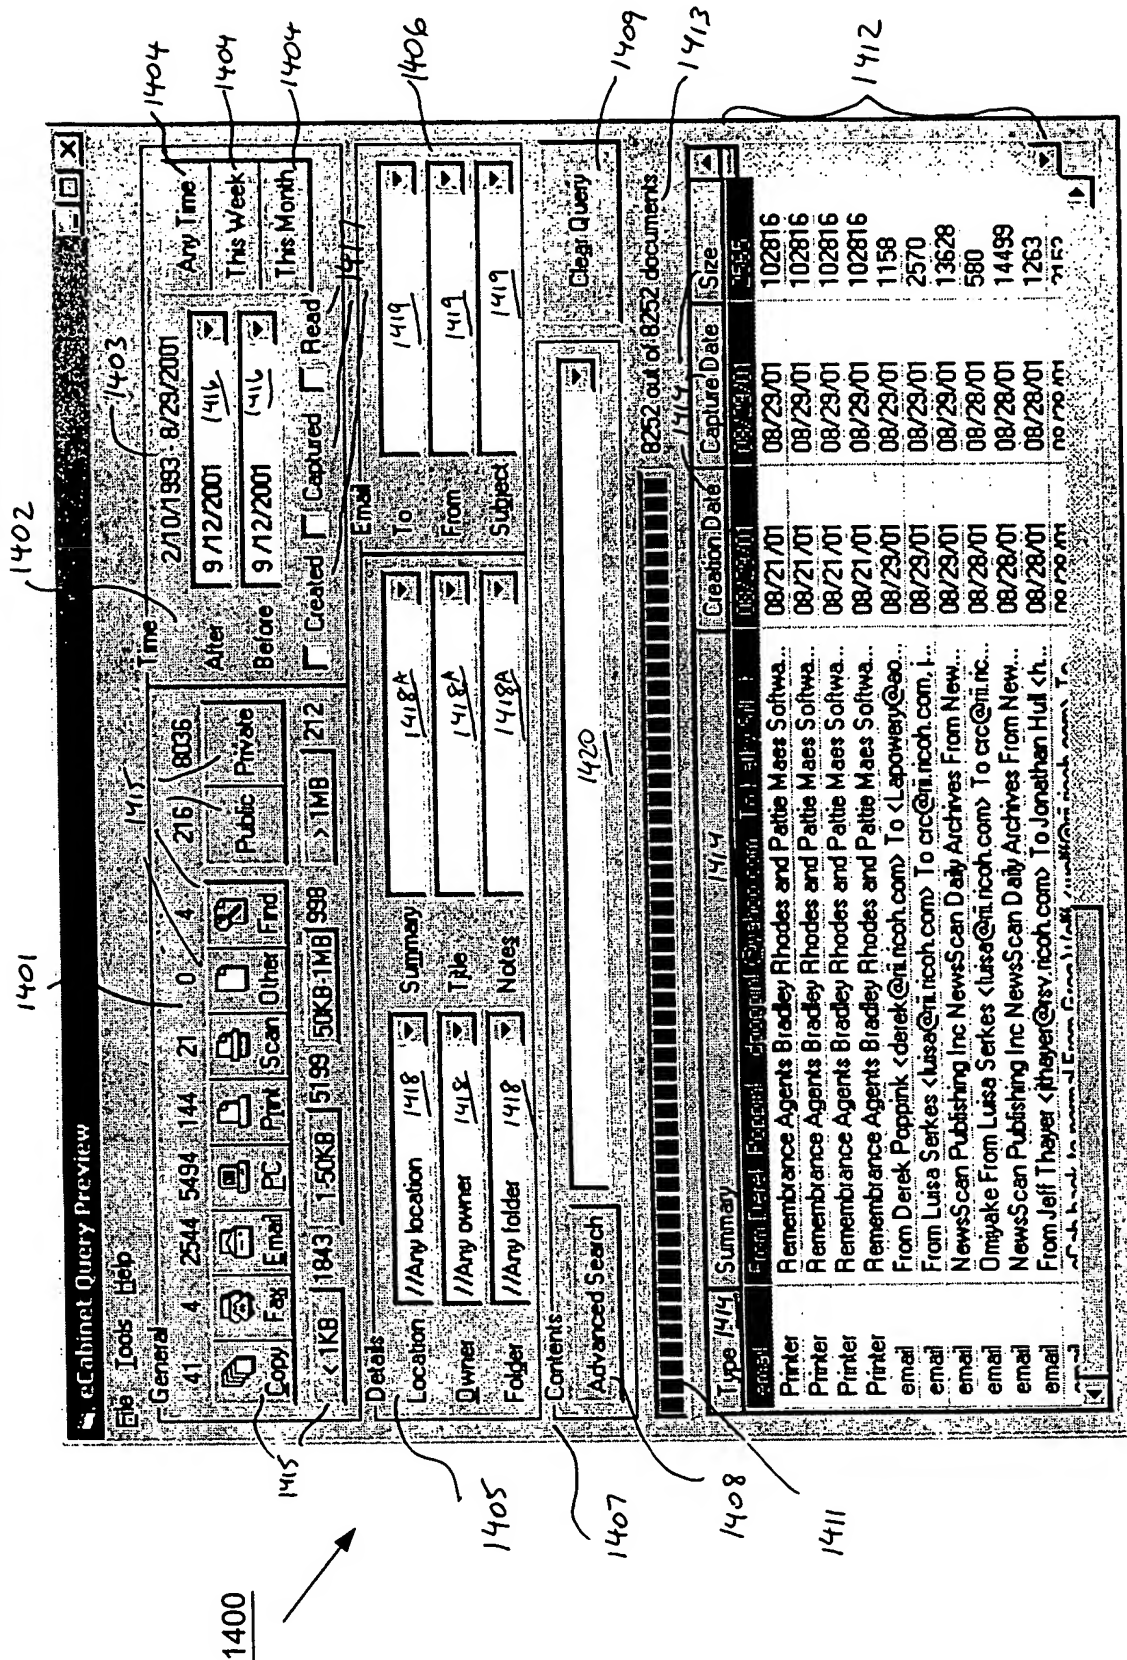 1400
1401
1402
1403
1404
1404
1404
1405
1406
1407
1408
1409
1411
1412
1413
1415
1415
1417
eCabinet Query Preview
File Tools Help
General
41 4 2544 5494 144 21 0 4 216 8036
Copy Fax Email PC Print Scan Other Find Public Private
< 1KB 1843 1-50KB 5199 50KB-1MB 998 > 1MB 212
Time 2/10/1993 - 8/29/2001
After 9/12/2001 1416
Before 9/12/2001 1416
Created Captured Read
Any Time
This Week
This Month
Details
Location //Any location 1418 Summary 1418A
Owner //Any owner 1418 Title 1418A
Folder //Any folder 1418 Notes 1418A
Email
To 1419
From 1419
Subject 1419
Contents
Advanced Search 1420
Clear Query
8252 out of 8252 documents
Type 1414 Summary 1414 Creation Date 1414 Capture Date Size
Printer Remembrance Agents Bradley Rhodes and Pattie Maes Softwa... 08/21/01 08/29/01 102816
Printer Remembrance Agents Bradley Rhodes and Pattie Maes Softwa... 08/21/01 08/29/01 102816
Printer Remembrance Agents Bradley Rhodes and Pattie Maes Softwa... 08/21/01 08/29/01 102816
Printer Remembrance Agents Bradley Rhodes and Pattie Maes Softwa... 08/21/01 08/29/01 102816
email From Derek Poppink <derek@rii.ricoh.com> To <Lapowery@ao... 08/29/01 08/29/01 1158
email From Luisa Serkes <luisa@rii.ricoh.com> To crc@rii.ricoh.com, j... 08/29/01 08/29/01 2570
email NewsScan Publishing Inc NewsScan Daily Archives From New... 08/28/01 08/28/01 13628
email Omiyake From Luisa Serkes <luisa@rii.ricoh.com> To crc@rii.ric... 08/28/01 08/28/01 580
email NewsScan Publishing Inc NewsScan Daily Archives From New... 08/28/01 08/28/01 14499
email From Jeff Thayer <jthayer@rsv.ricoh.com> To Jonathan Hull <h... 08/28/01 08/28/01 1263